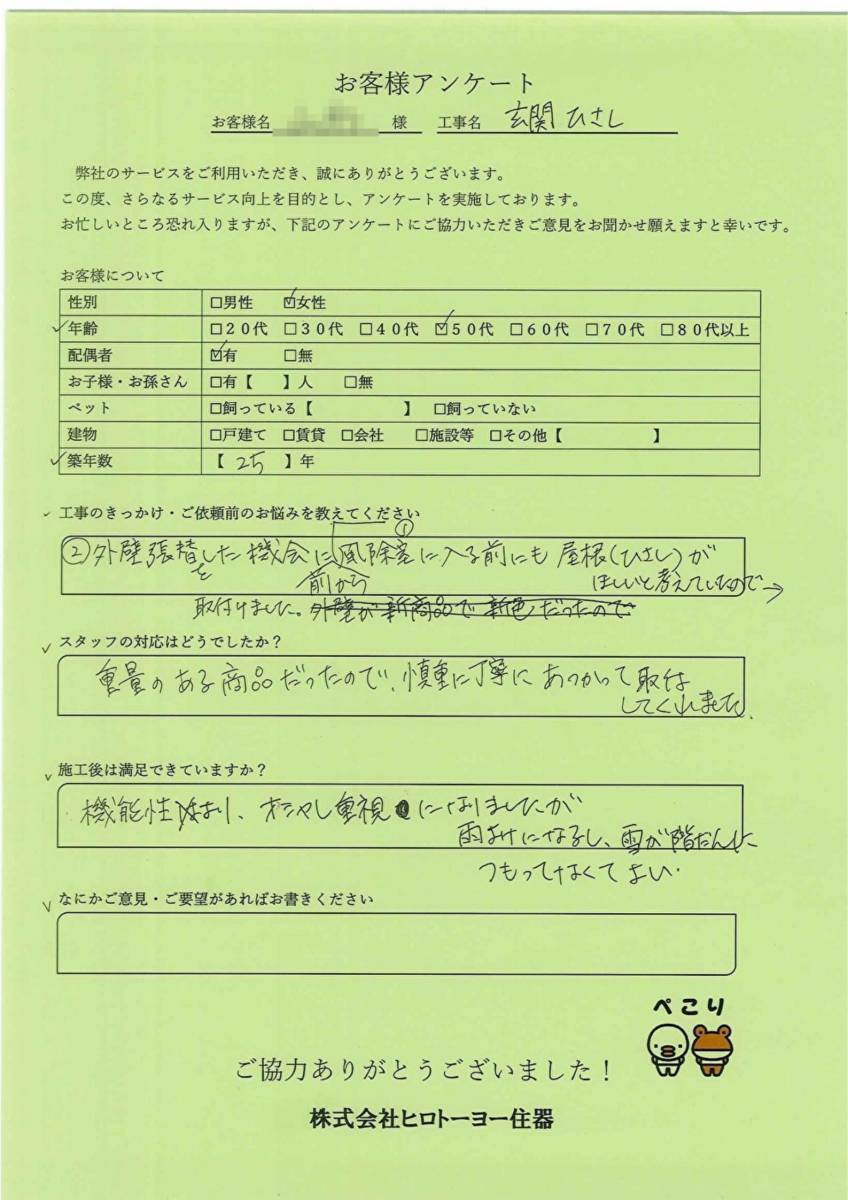 お客様アンケート
お客様名 様 工事名 玄関ひさし
弊社のサービスをご利用いただき、誠にありがとうございます。
この度、さらなるサービス向上を目的とし、アンケートを実施しております。
お忙しいところ恐れ入りますが、下記のアンケートにご協力いただきご意見をお聞かせ願えますと幸いです。
お客様について
性別 □男性 ☑女性
✓年齢 □20代 □30代 □40代 ☑50代 □60代 □70代 □80代以上
配偶者 ☑有 □無
お子様・お孫さん □有【 】人 □無
ペット □飼っている【 】 □飼っていない
建物 □戸建て □賃貸 □会社 □施設等 □その他【 】
✓築年数 【 25 】年
✓工事のきっかけ・ご依頼前のお悩みを教えてください
①
②外壁張替した機会に風除室に入る前にも屋根(ひさし)が
を 前から ほしいと考えていたので→
取付けました。外壁が新商品で新色だったので
✓スタッフの対応はどうでしたか?
重量のある商品だったので、慎重に丁寧にあつかって取付
してくれました.
✓施工後は満足できていますか?
機能性より、オシャレ重視になりましたが
雨よけになるし、雪が階だんに
つもってなくてよい.
✓なにかご意見・ご要望があればお書きください
ぺこり
ご協力ありがとうございました!
株式会社ヒロトーヨー住器